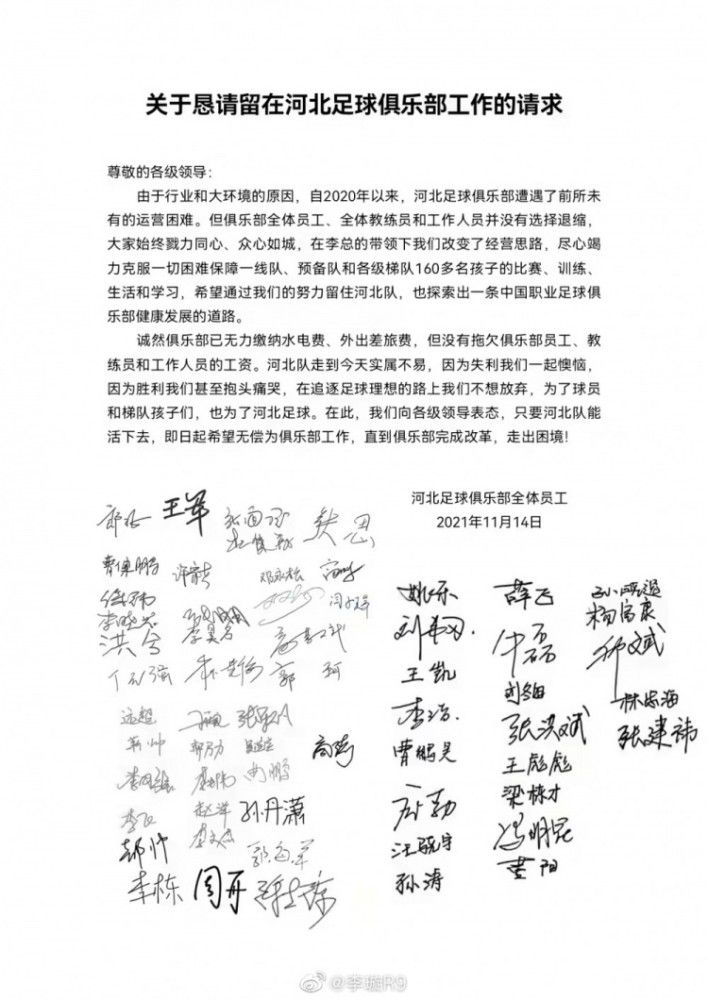 关于恳请留在河北足球俱乐部工作的请求
尊敬的各级领导：
由于行业和大环境的原因，自2020年以来，河北足球俱乐部遭遇了前所未
有的运营困难。但俱乐部全体员工、全体教练员和工作人员并没有选择退缩，
大家始终戮力同心、众心如城，在李总的带领下我们改变了经营思路，尽心竭
力克服一切困难保障一线队、预备队和各级梯队160多名孩子的比赛、训练、
生活和学习，希望通过我们的努力留住河北队，也探索出一条中国职业足球俱
乐部健康发展的道路。
诚然俱乐部已无力缴纳水电费、外出差旅费，但没有拖欠俱乐部员工、教
练员和工作人员的工资。河北队走到今天实属不易，因为失利我们一起懊恼，
因为胜利我们甚至抱头痛哭，在追逐足球理想的路上我们不想放弃，为了球员
和梯队孩子们，也为了河北足球。在此，我们向各级领导表态，只要河北队能
活下去，即日起希望无偿为俱乐部工作，直到俱乐部完成改革，走出困境！
河北足球俱乐部全体员工
2021年11月14日
王军
洪兮
郭珂
孙丹潇
郝帅
李栋 周开
姚乐 薛飞
杨富康
王凯
李浩
曹鹏昊
张洪斌
林志海
张建祎
王彪彪
梁栋才
汪晓宇
冯明昆
黄阳
孙涛
@李璇R9